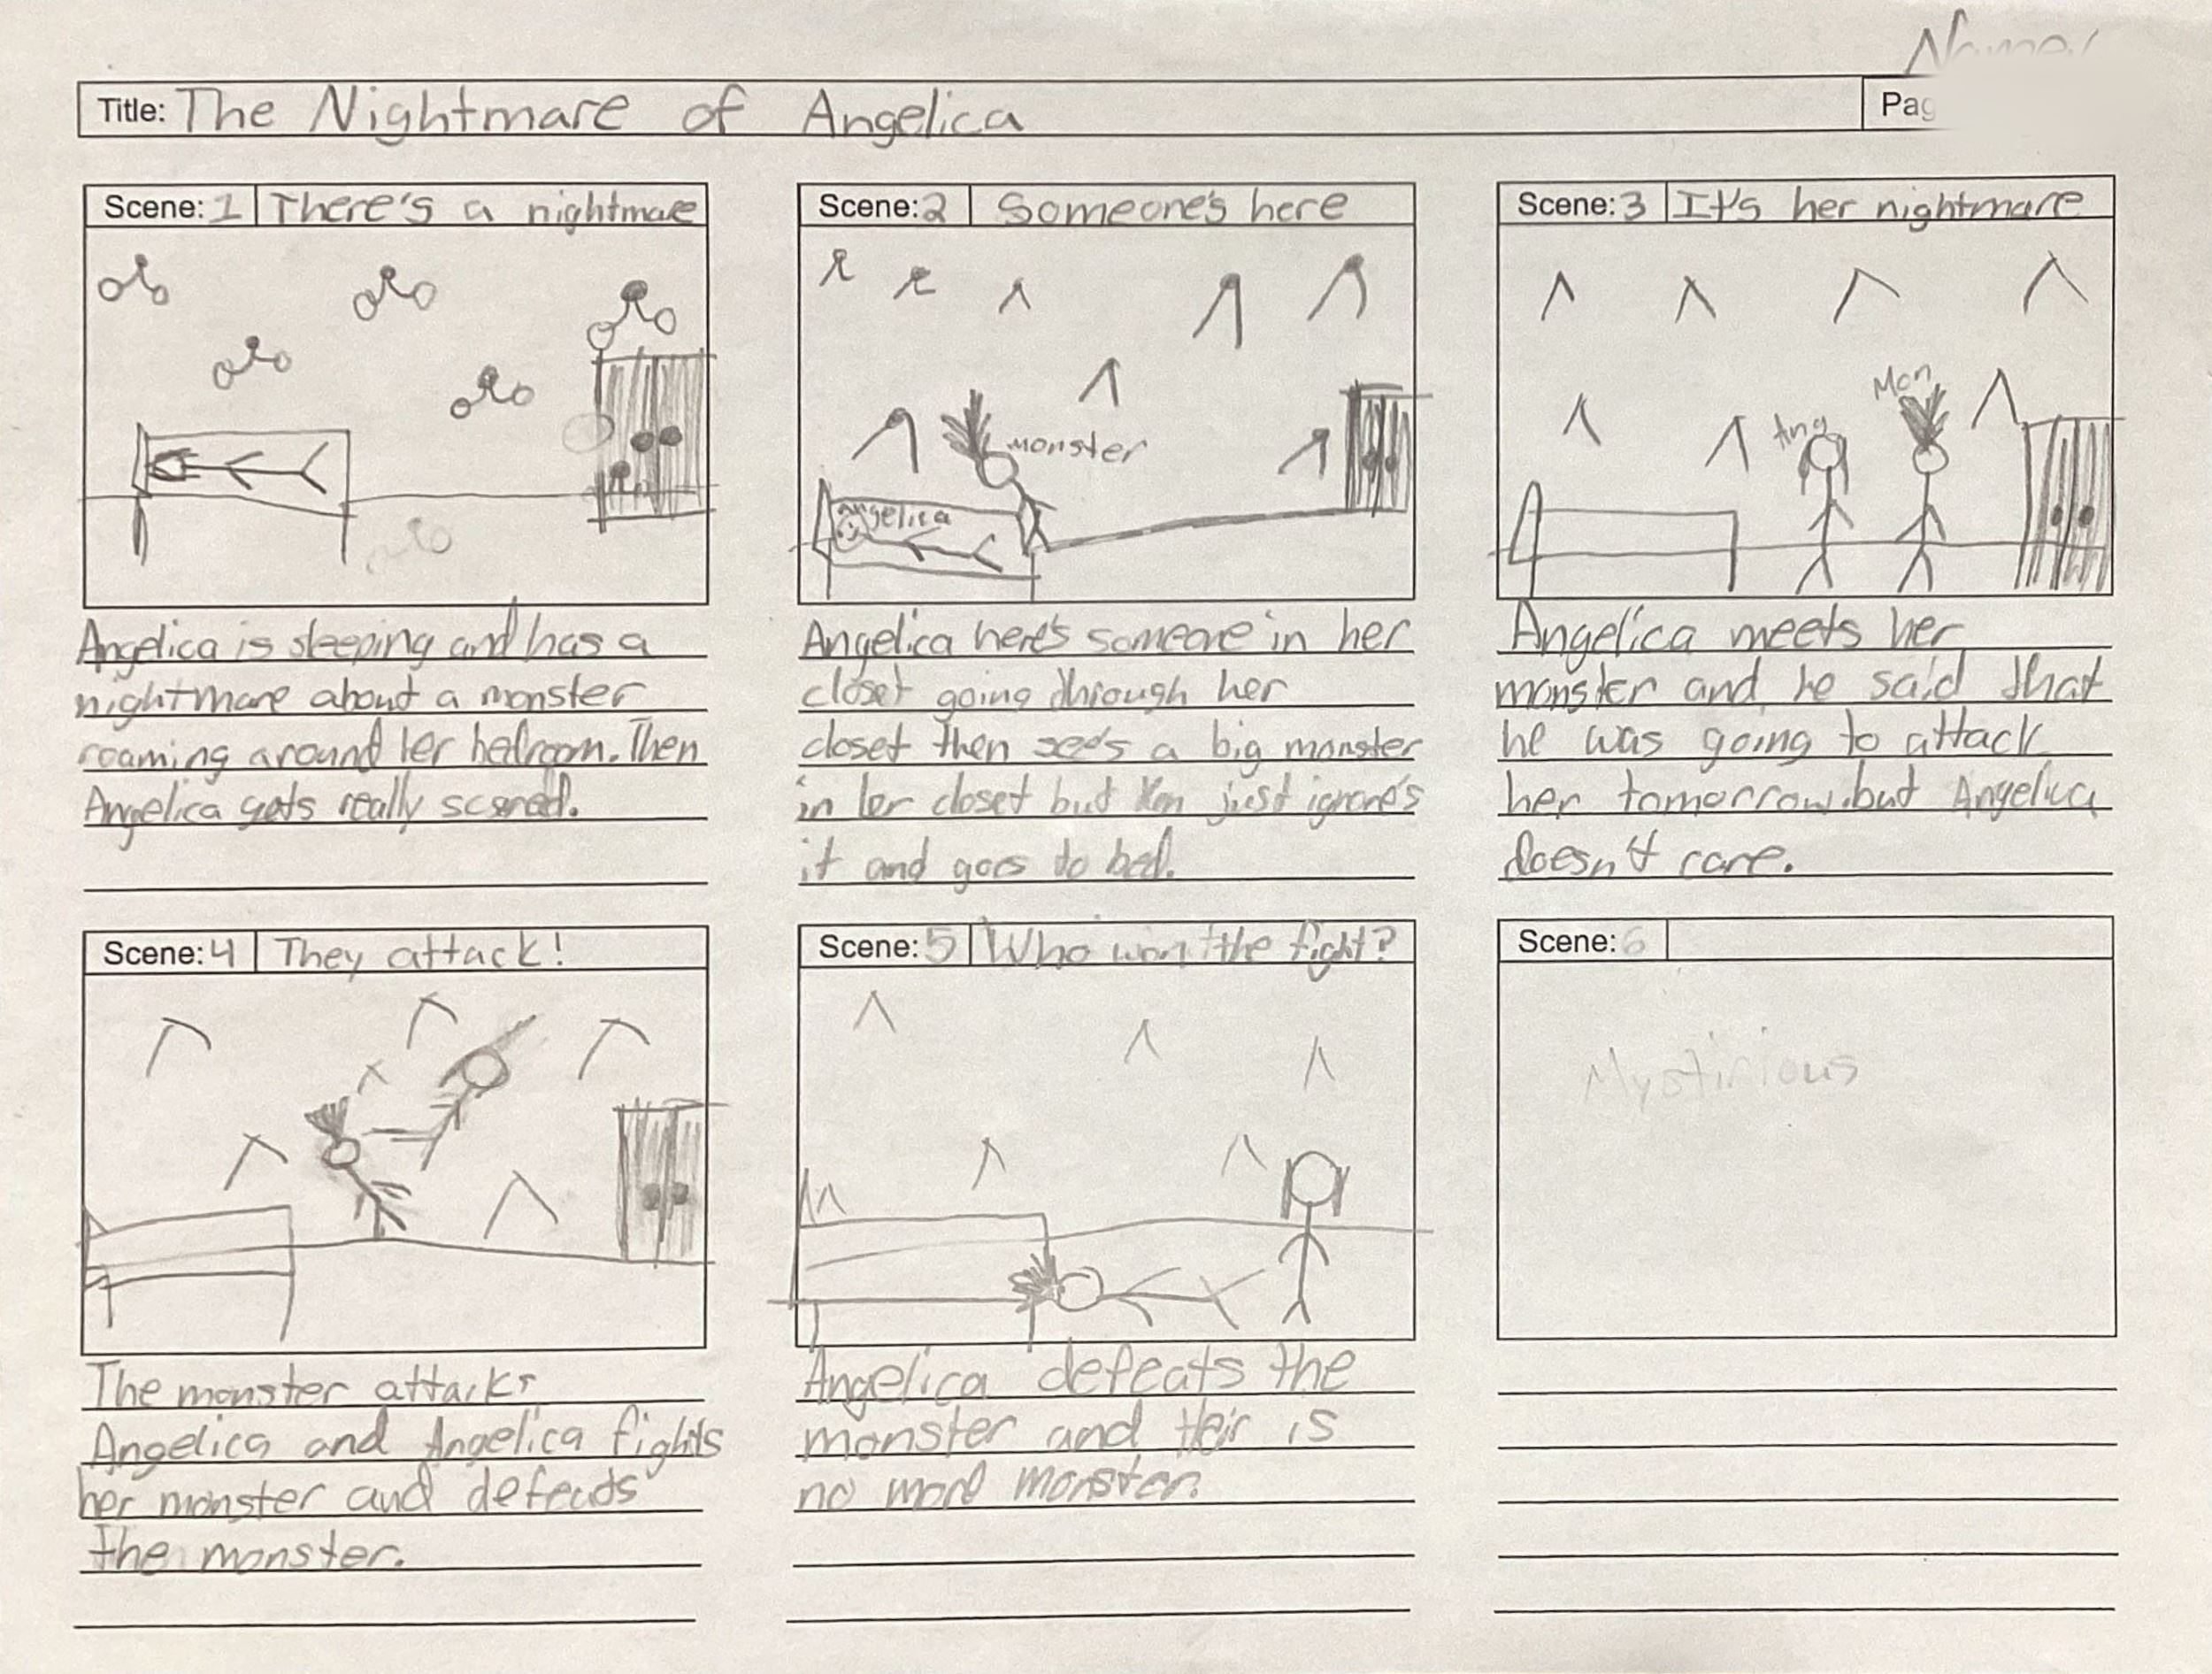 Name:
Title: The Nightmare of Angelica
Pag
Scene: 1 There's a nightmare
Angelica is sleeping and has a
nightmare about a monster
roaming around her bedroom. Then
Angelica gets really scared.
Scene: 2 Someone's here
monster
angelica
Angelica here's someone in her
closet going through her
closet then sees a big monster
in her closet but just ignore's
it and goes to bed.
Scene: 3 It's her nightmare
Mon
Ang
Angelica meets her
monster and he said that
he was going to attack
her tomorrow. but Angelica
doesn't care.
Scene: 4 They attack!
The monster attacks
Angelica and Angelica fights
her monster and defeads
the monster.
Scene: 5 Who won the fight?
Angelica defeats the
monster and their is
no more monster.
Scene: 6
Mystirious